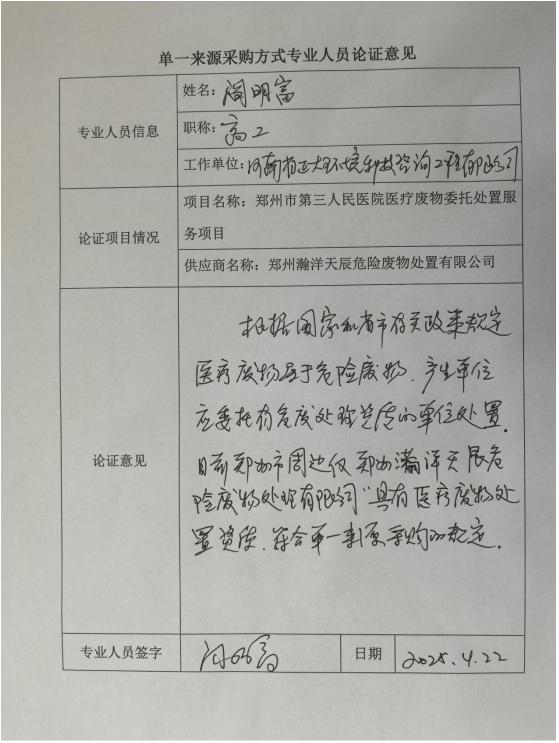 单一来源采购方式专业人员论证意见
专业人员信息
姓名：阎明富
职称：高工
工作单位：河南省正大环境科技咨询工程有限公司
论证项目情况
项目名称：郑州市第三人民医院医疗废物委托处置服
务项目
供应商名称：郑州瀚洋天辰危险废物处置有限公司
论证意见
根据国家和省市有关政策规定
医疗废物属于危险废物．产生单位
应委托有危废处理资质的单位处置．
目前郑州市周边仅郑州瀚洋天辰危
险废物处理有限公司”具有医疗废物处
置资质．符合单一来源采购的规定．
专业人员签字
闫明富
日期
2025.4.22